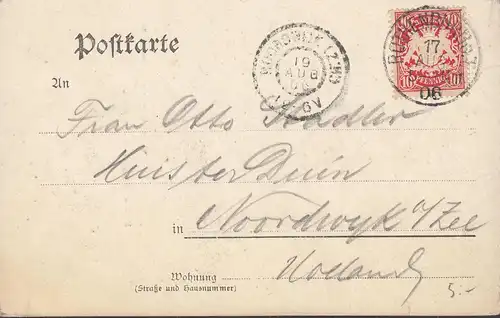 Postkarte
NOORDWIJK (Z.H)
19
AUG
6V
17
AUG
06
10
An
Frau Otto Stadler
Huis ter Duin
in Noordwyk a/Zee
Holland
Wohnung
(Straße und Hausnummer)
5.-